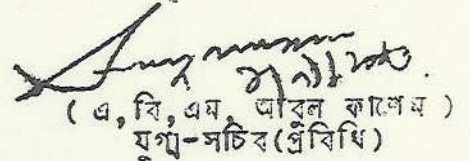 ( এ, বি, এম, আবুল কাশেম )
যুগ্ম-সচিব(প্রবিধি)